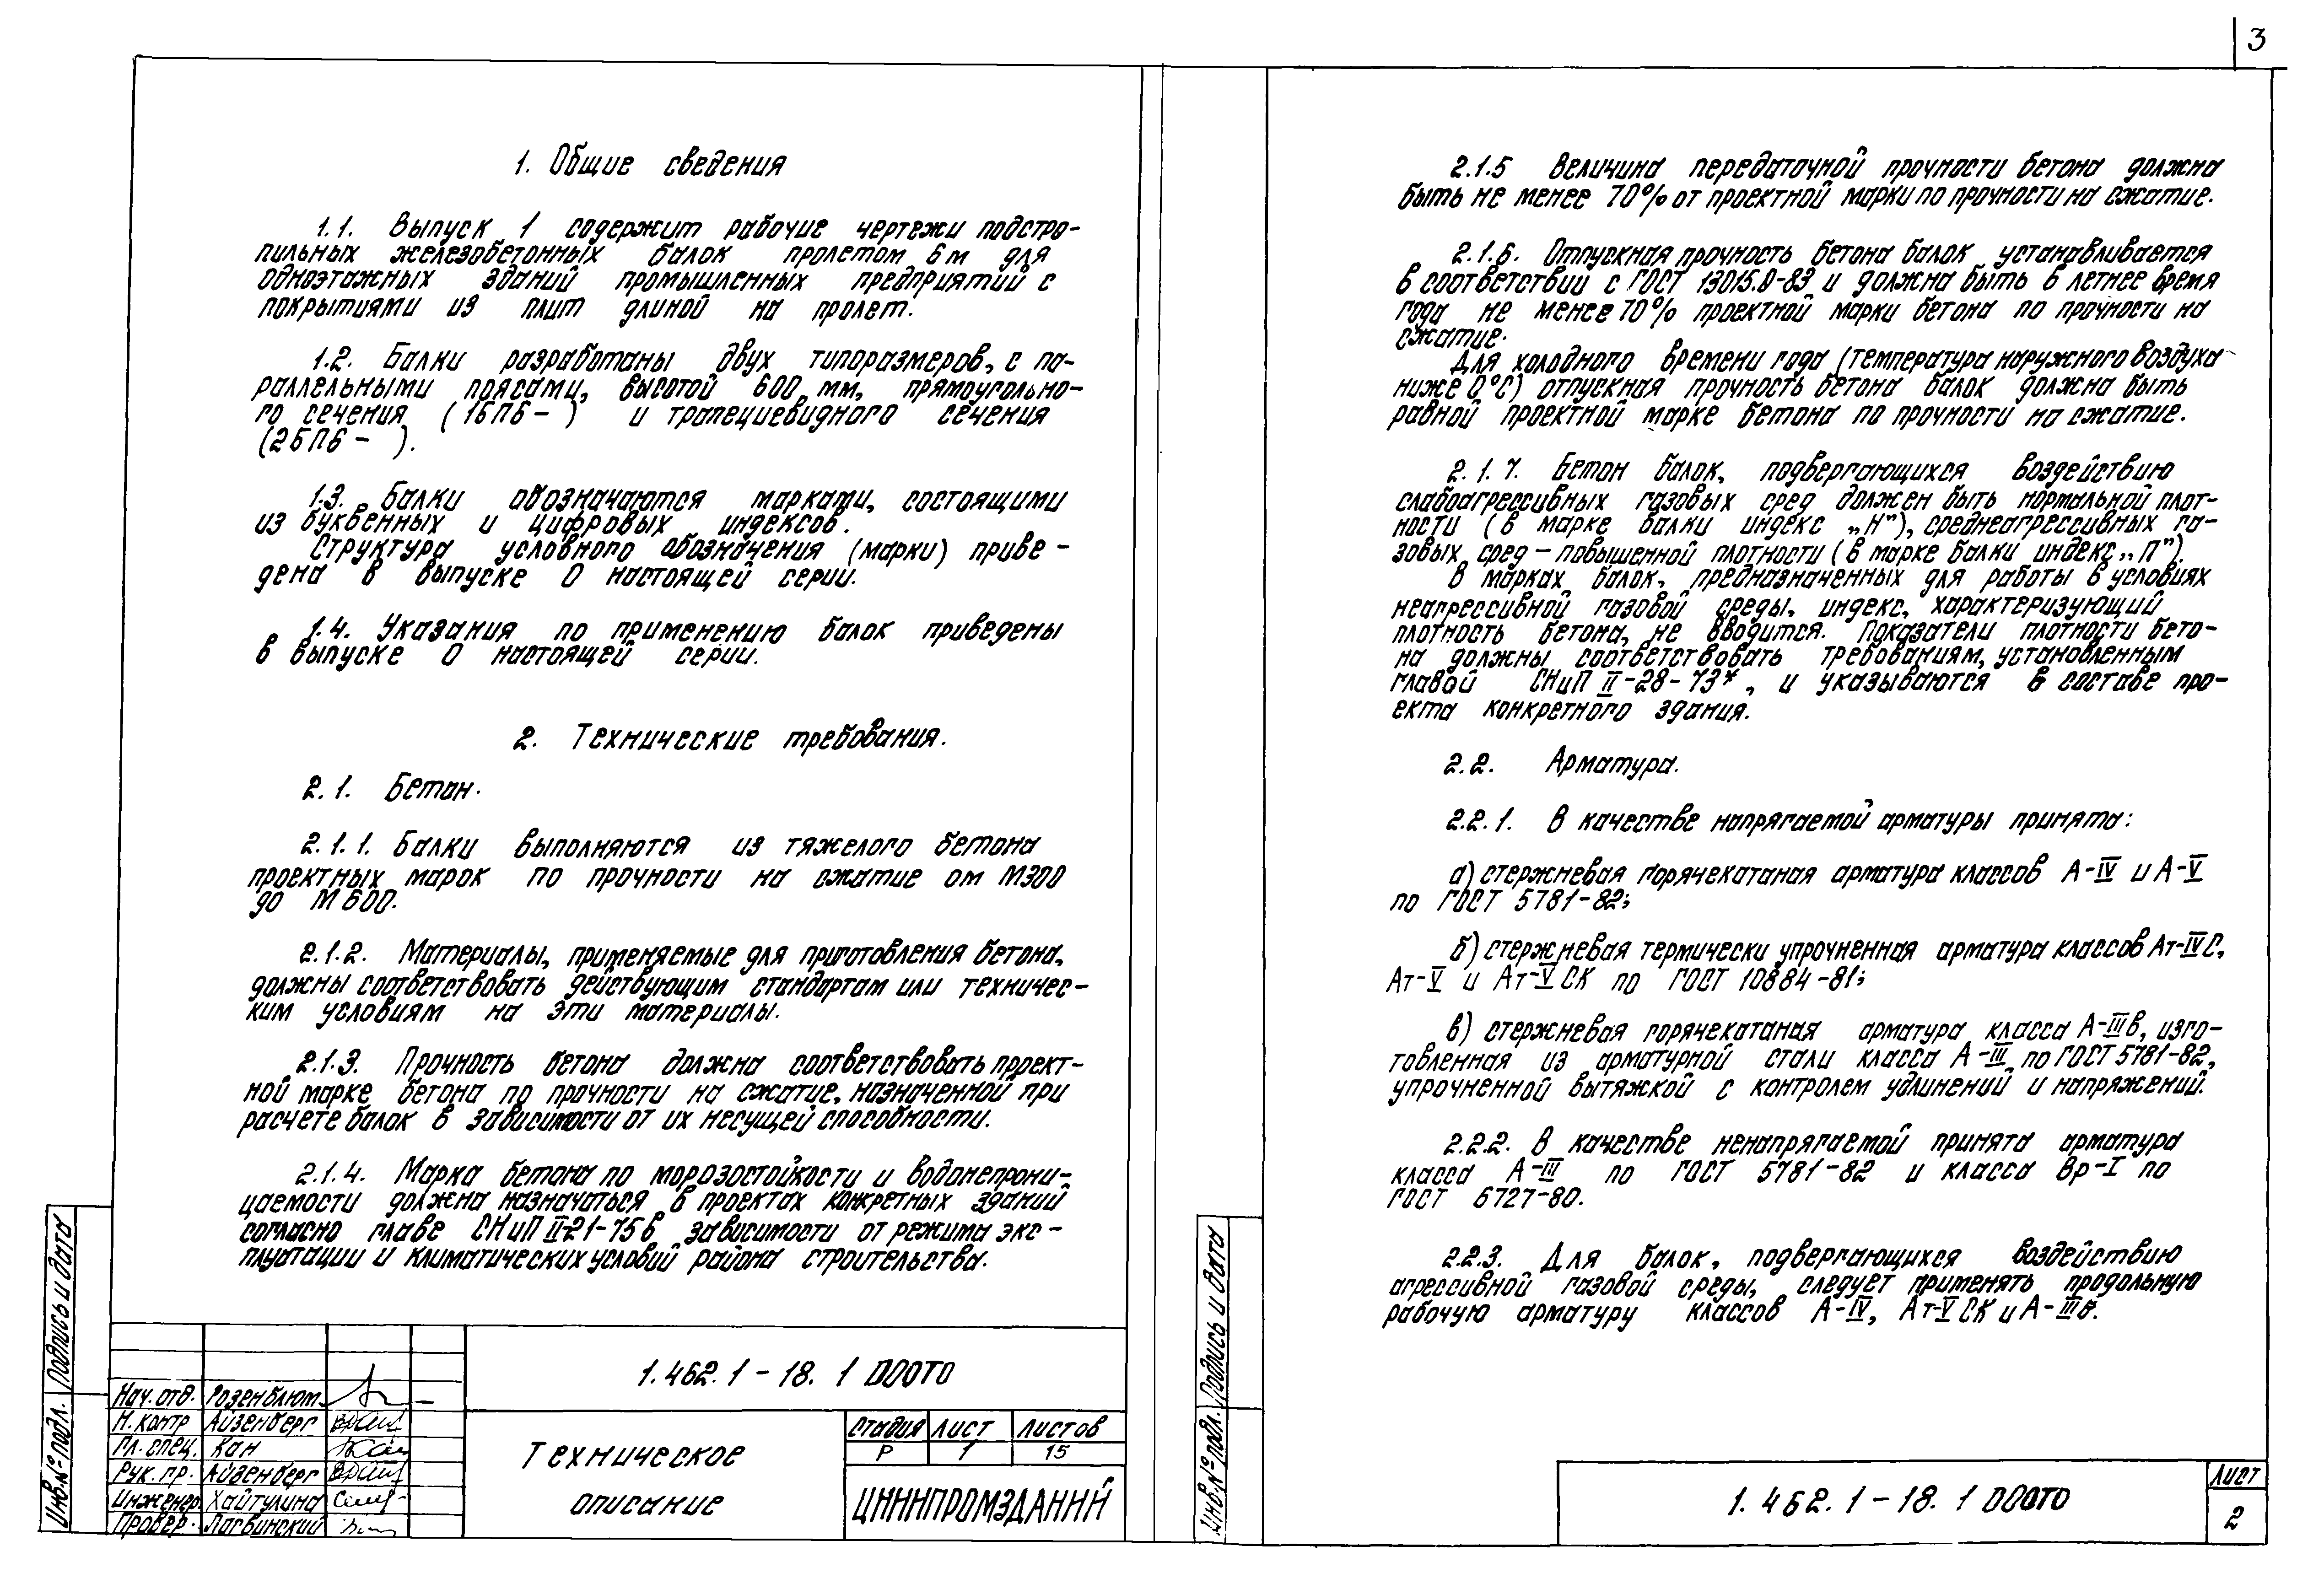 3
1. Общие сведения
1.1. Выпуск 1 содержит рабочие чертежи подстро-
пильных железобетонных балок пролетом 6 м для
одноэтажных зданий промышленных предприятий с
покрытиями из плит длиной на пролет.
1.2. Балки разработаны двух типоразмеров, с па-
раллельными поясами, высотой 600 мм, прямоугольно-
го сечения (1БП6- ) и трапециевидного сечения
(2БП6- ).
1.3. Балки обозначаются марками, состоящими
из буквенных и цифровых индексов.
Структура условного обозначения (марки) приве-
дена в выпуске 0 настоящей серии.
1.4. Указания по применению балок приведены
в выпуске 0 настоящей серии.
2. Технические требования.
2.1. Бетон.
2.1.1. Балки выполняются из тяжелого бетона
проектных марок по прочности на сжатие от М300
до М600.
2.1.2. Материалы, применяемые для приготовления бетона,
должны соответствовать действующим стандартам или техничес-
ким условиям на эти материалы.
2.1.3. Прочность бетона должна соответствовать проект-
ной марке бетона по прочности на сжатие, назначенной при
расчете балок в зависимости от их несущей способности.
2.1.4. Марка бетона по морозостойкости и водонепрони-
цаемости должна назначаться в проектах конкретных зданий
согласно главе СНиП II-21-75 в зависимости от режима экс-
плуатации и климатических условий района строительства.
Подпись и дата
Инв.№ подл.
Нач. отд. Розенблют
Н. контр Айзенберг
Гл. спец. Кан
Рук. пр. Айзенберг
Инженер. Хайтулина
Провер. Логвинский
1.462.1-18. 1 D00ТО
Техническое
описание
Стадия Лист Листов
Р 1 15
ЦНИИПРОМЗДАНИЙ
2.1.5 Величина передаточной прочности бетона должна
быть не менее 70% от проектной марки по прочности на сжатие.
2.1.6. Отпускная прочность бетона балок устанавливается
в соответствии с ГОСТ 13015.0-83 и должна быть в летнее время
года не менее 70% проектной марки бетона по прочности на
сжатие.
Для холодного времени года (температура наружного воздуха
ниже 0°С) отпускная прочность бетона балок должна быть
равной проектной марке бетона по прочности на сжатие.
2.1.7. Бетон балок, подвергающихся воздействию
слабоагрессивных газовых сред должен быть нормальной плот-
ности (в марке балки индекс „Н"), среднеагрессивных га-
зовых сред - повышенной плотности (в марке балки индекс „П").
В марках балок, предназначенных для работы в условиях
неагрессивной газовой среды, индекс, характеризующий
плотность бетона, не вводится. Показатели плотности бето-
на должны соответствовать требованиям, установленным
главой СНиП II-28-73*, и указываются в составе про-
екта конкретного здания.
2.2. Арматура.
2.2.1. В качестве напрягаемой арматуры принята:
а) стержневая горячекатаная арматура классов А-IV и А-V
по ГОСТ 5781-82;
б) стержневая термически упрочненная арматура классов Ат-IVС,
Ат-V и Ат-VСК по ГОСТ 10884-81;
в) стержневая горячекатаная арматура класса А-IIIв, изго-
товленная из арматурной стали класса А-III по ГОСТ 5781-82,
упрочненной вытяжкой с контролем удлинений и напряжений.
2.2.2. В качестве ненапрягаемой принята арматура
класса А-III по ГОСТ 5781-82 и класса Вр-I по
ГОСТ 6727-80.
2.2.3. Для балок, подвергающихся воздействию
агрессивной газовой среды, следует применять продольную
рабочую арматуру классов А-IV, Ат-VСК и А-IIIв.
Подпись и дата
Инв.№ подл.
1.462.1-18. 1 D00ТО
Лист
2